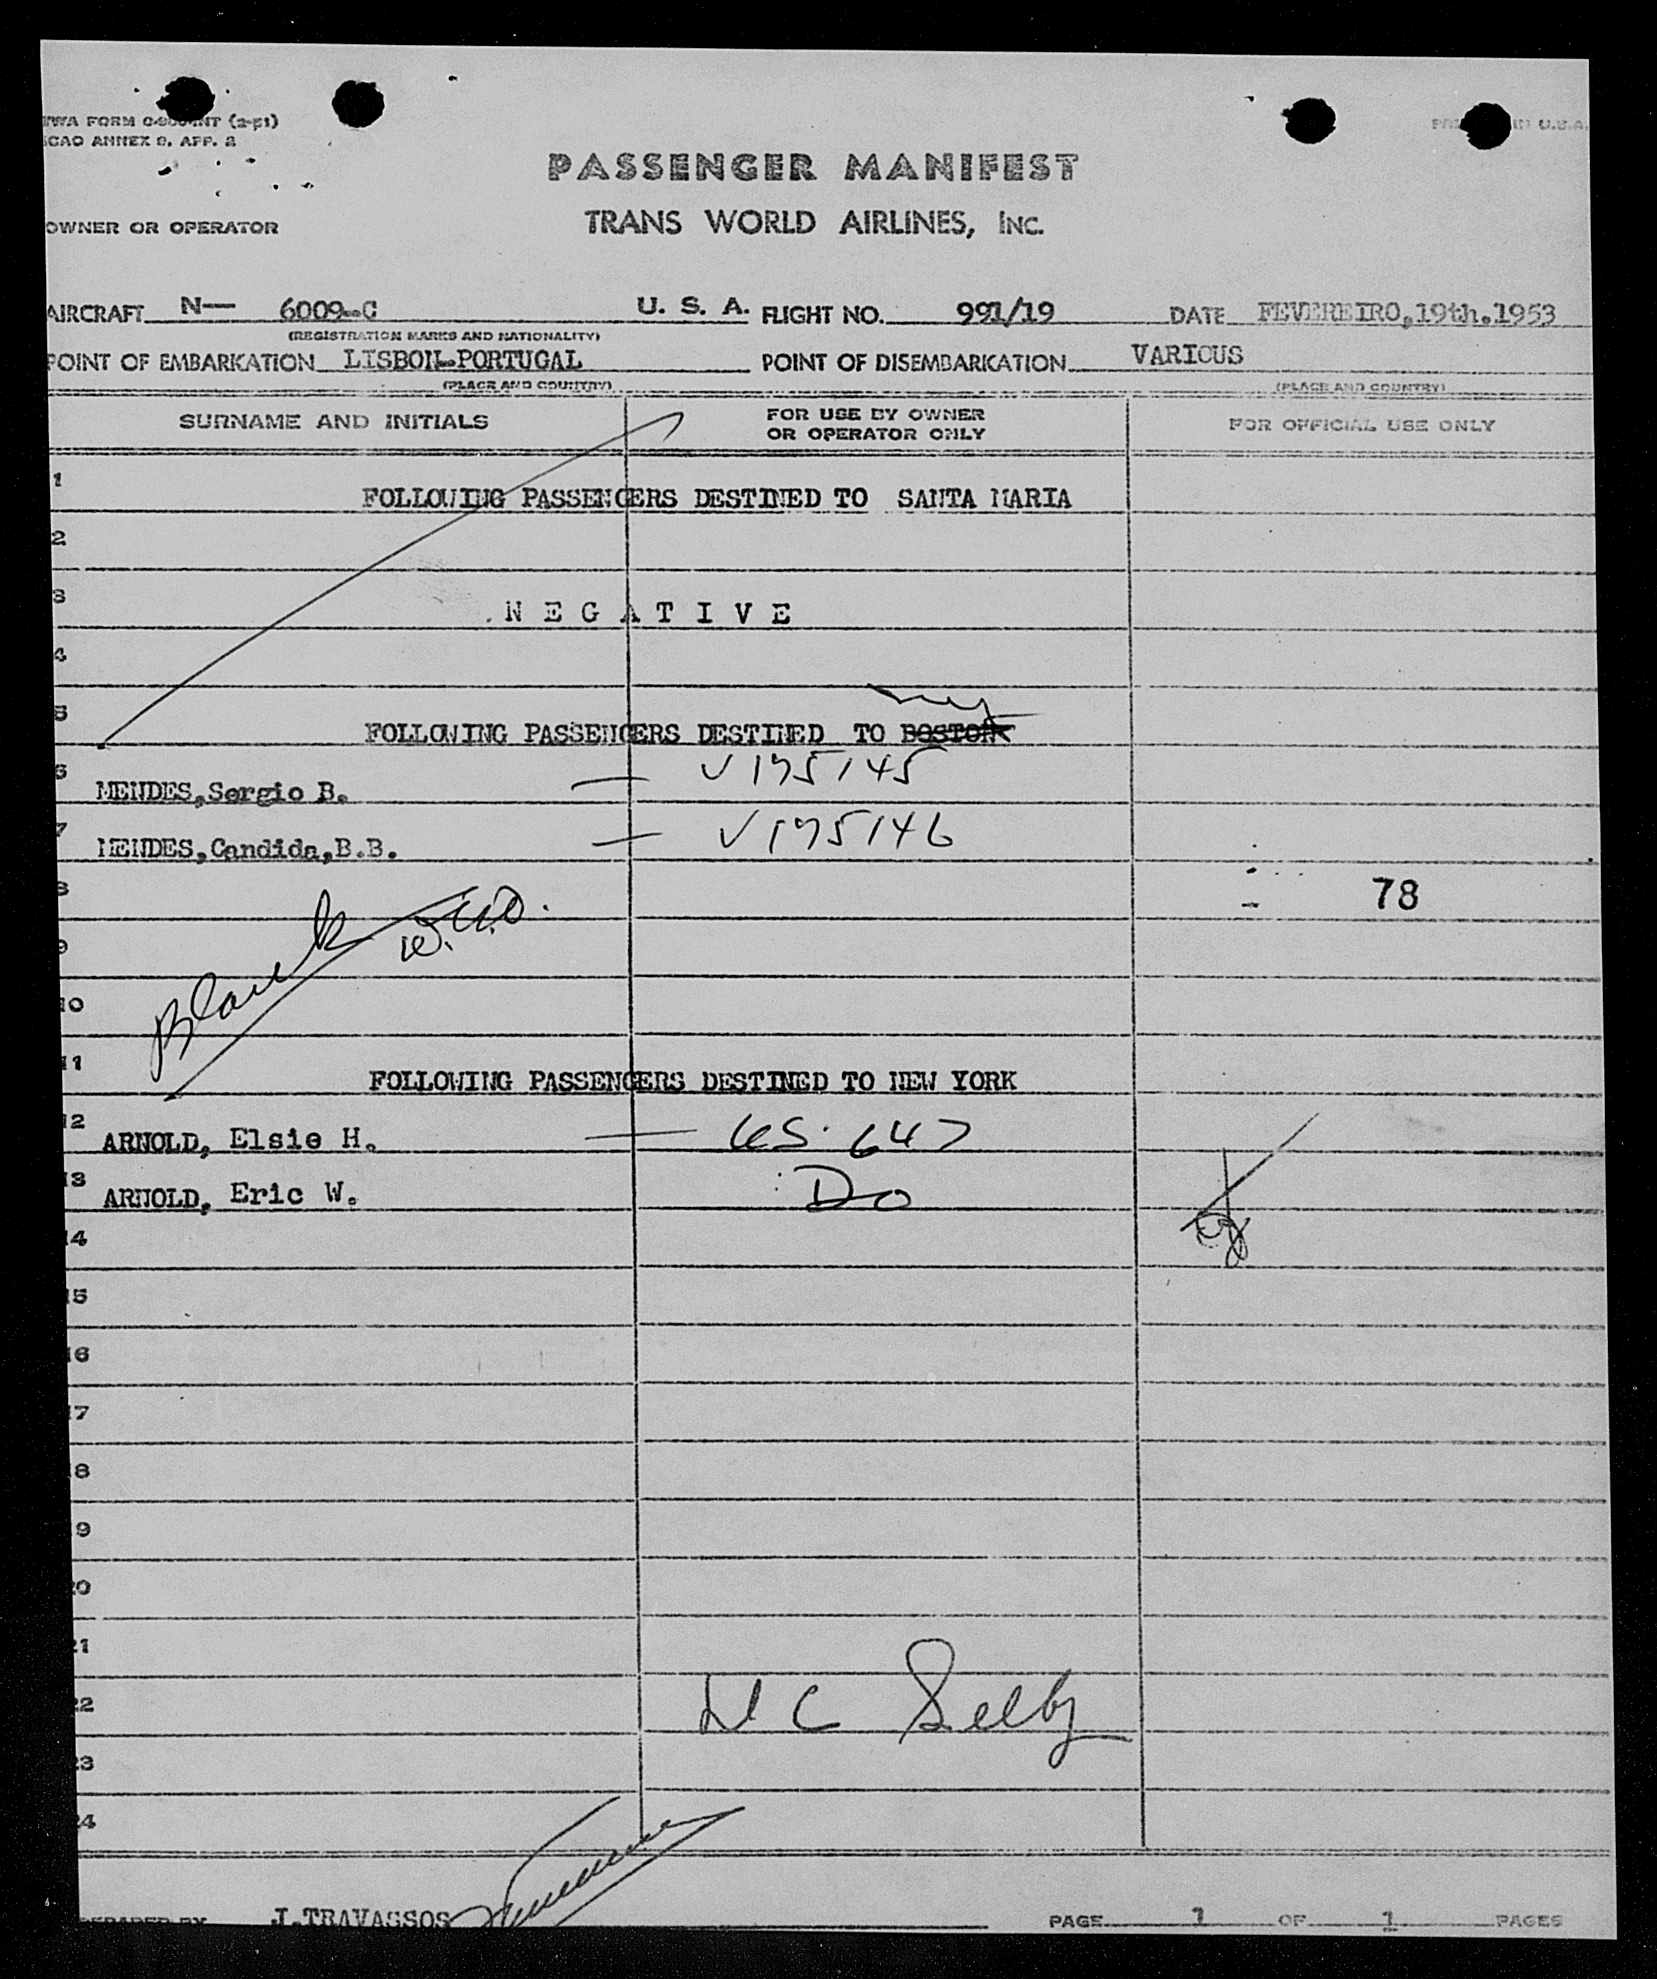 TWA FORM
ICAO ANNEX 9, APP. 2
PASSENGER MANIFEST
OWNER OR OPERATOR
TRANS WORLD AIRLINES, INC.
AIRCRAFT N— 6009-C U. S. A. FLIGHT NO. 991/19 DATE FEVEREIRO,19th.1953
(REGISTRATION MARKS AND NATIONALITY)
POINT OF EMBARKATION LISBON-PORTUGAL POINT OF DISEMBARKATION VARIOUS
(PLACE AND COUNTRY) (PLACE AND COUNTRY)
SURNAME AND INITIALS FOR USE BY OWNER OR OPERATOR ONLY FOR OFFICIAL USE ONLY
1 FOLLOWING PASSENGERS DESTINED TO SANTA MARIA
2
3 N E G A T I V E
4
ny
5 FOLLOWING PASSENGERS DESTINED TO BOSTON
6 MENDES,Sergio B. — V 175145
7 MENDES,Candida,B.B. — V 175146
8 78
9
Blank
10
11 FOLLOWING PASSENGERS DESTINED TO NEW YORK
12 ARNOLD, Elsie H. — US. 647
13 ARNOLD, Eric W. Do
14
15
16
17
18
19
20
21
22 Selby
23
24
PREPARED BY J.TRAVASSOS PAGE 1 OF 1 PAGES